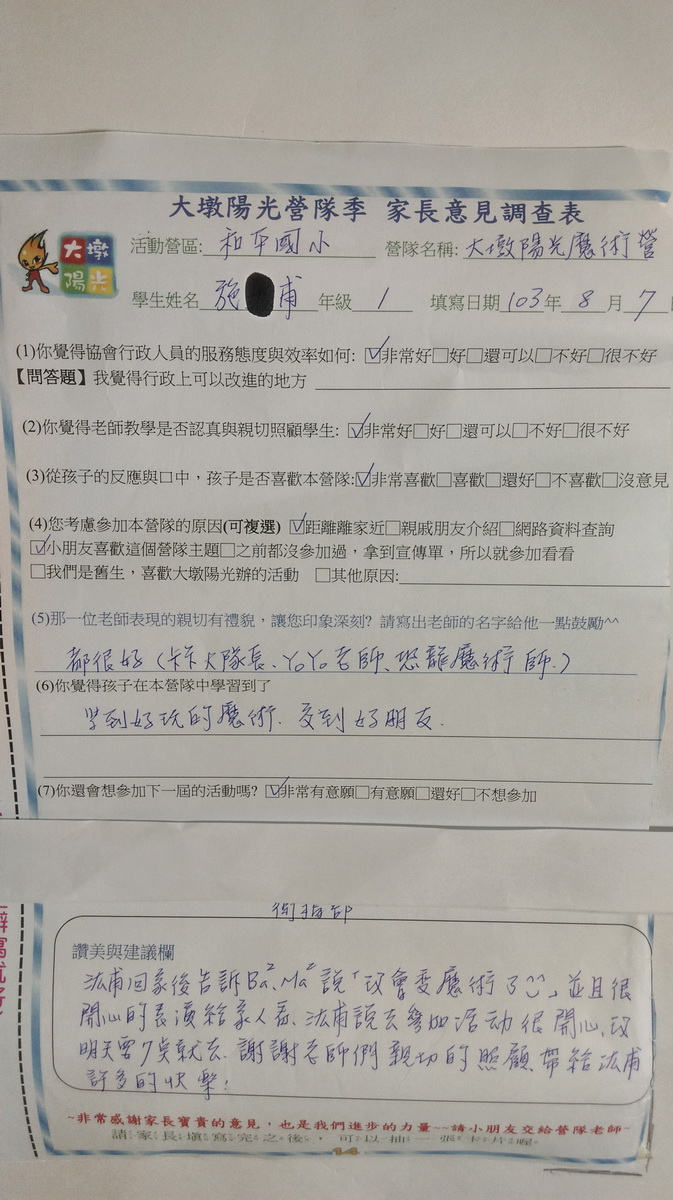 大墩陽光營隊季 家長意見調查表
大墩
陽光
活動營區: 和平國小 營隊名稱: 大墩陽光魔術營
學生姓名 施 甫 年級 1 填寫日期 103年 8 月 7
(1)你覺得協會行政人員的服務態度與效率如何: ☑非常好□好□還可以□不好□很不好
【問答題】我覺得行政上可以改進的地方
(2)你覺得老師教學是否認真與親切照顧學生: ☑非常好□好□還可以□不好□很不好
(3)從孩子的反應與口中，孩子是否喜歡本營隊:☑非常喜歡□喜歡□還好□不喜歡□沒意見
(4)您考慮參加本營隊的原因(可複選) ☑距離離家近□親戚朋友介紹□網路資料查詢
☑小朋友喜歡這個營隊主題□之前都沒參加過，拿到宣傳單，所以就參加看看
□我們是舊生，喜歡大墩陽光辦的活動 □其他原因:
(5)那一位老師表現的親切有禮貌，讓您印象深刻? 請寫出老師的名字給他一點鼓勵^^
都很好(卡卡大隊長、YoYo老師、恐龍魔術師.)
(6)你覺得孩子在本營隊中學習到了
學到好玩的魔術、交到好朋友.
(7)你還會想參加下一屆的活動嗎? ☑非常有意願□有意願□還好□不想參加
讚美與建議欄
法甫回家後告訴Ba²、Ma²說「我會變魔術了^^」並且很
開心的表演給家人看、法甫說去參加活动很開心、我
明天要7點就去. 謝謝老師們親切的照顧帶給法甫
許多的快樂!
~非常感謝家長寶貴的意見，也是我們進步的力量~~請小朋友交給營隊老師~
請家長填寫完之後，可以抽一張卡片喔
14